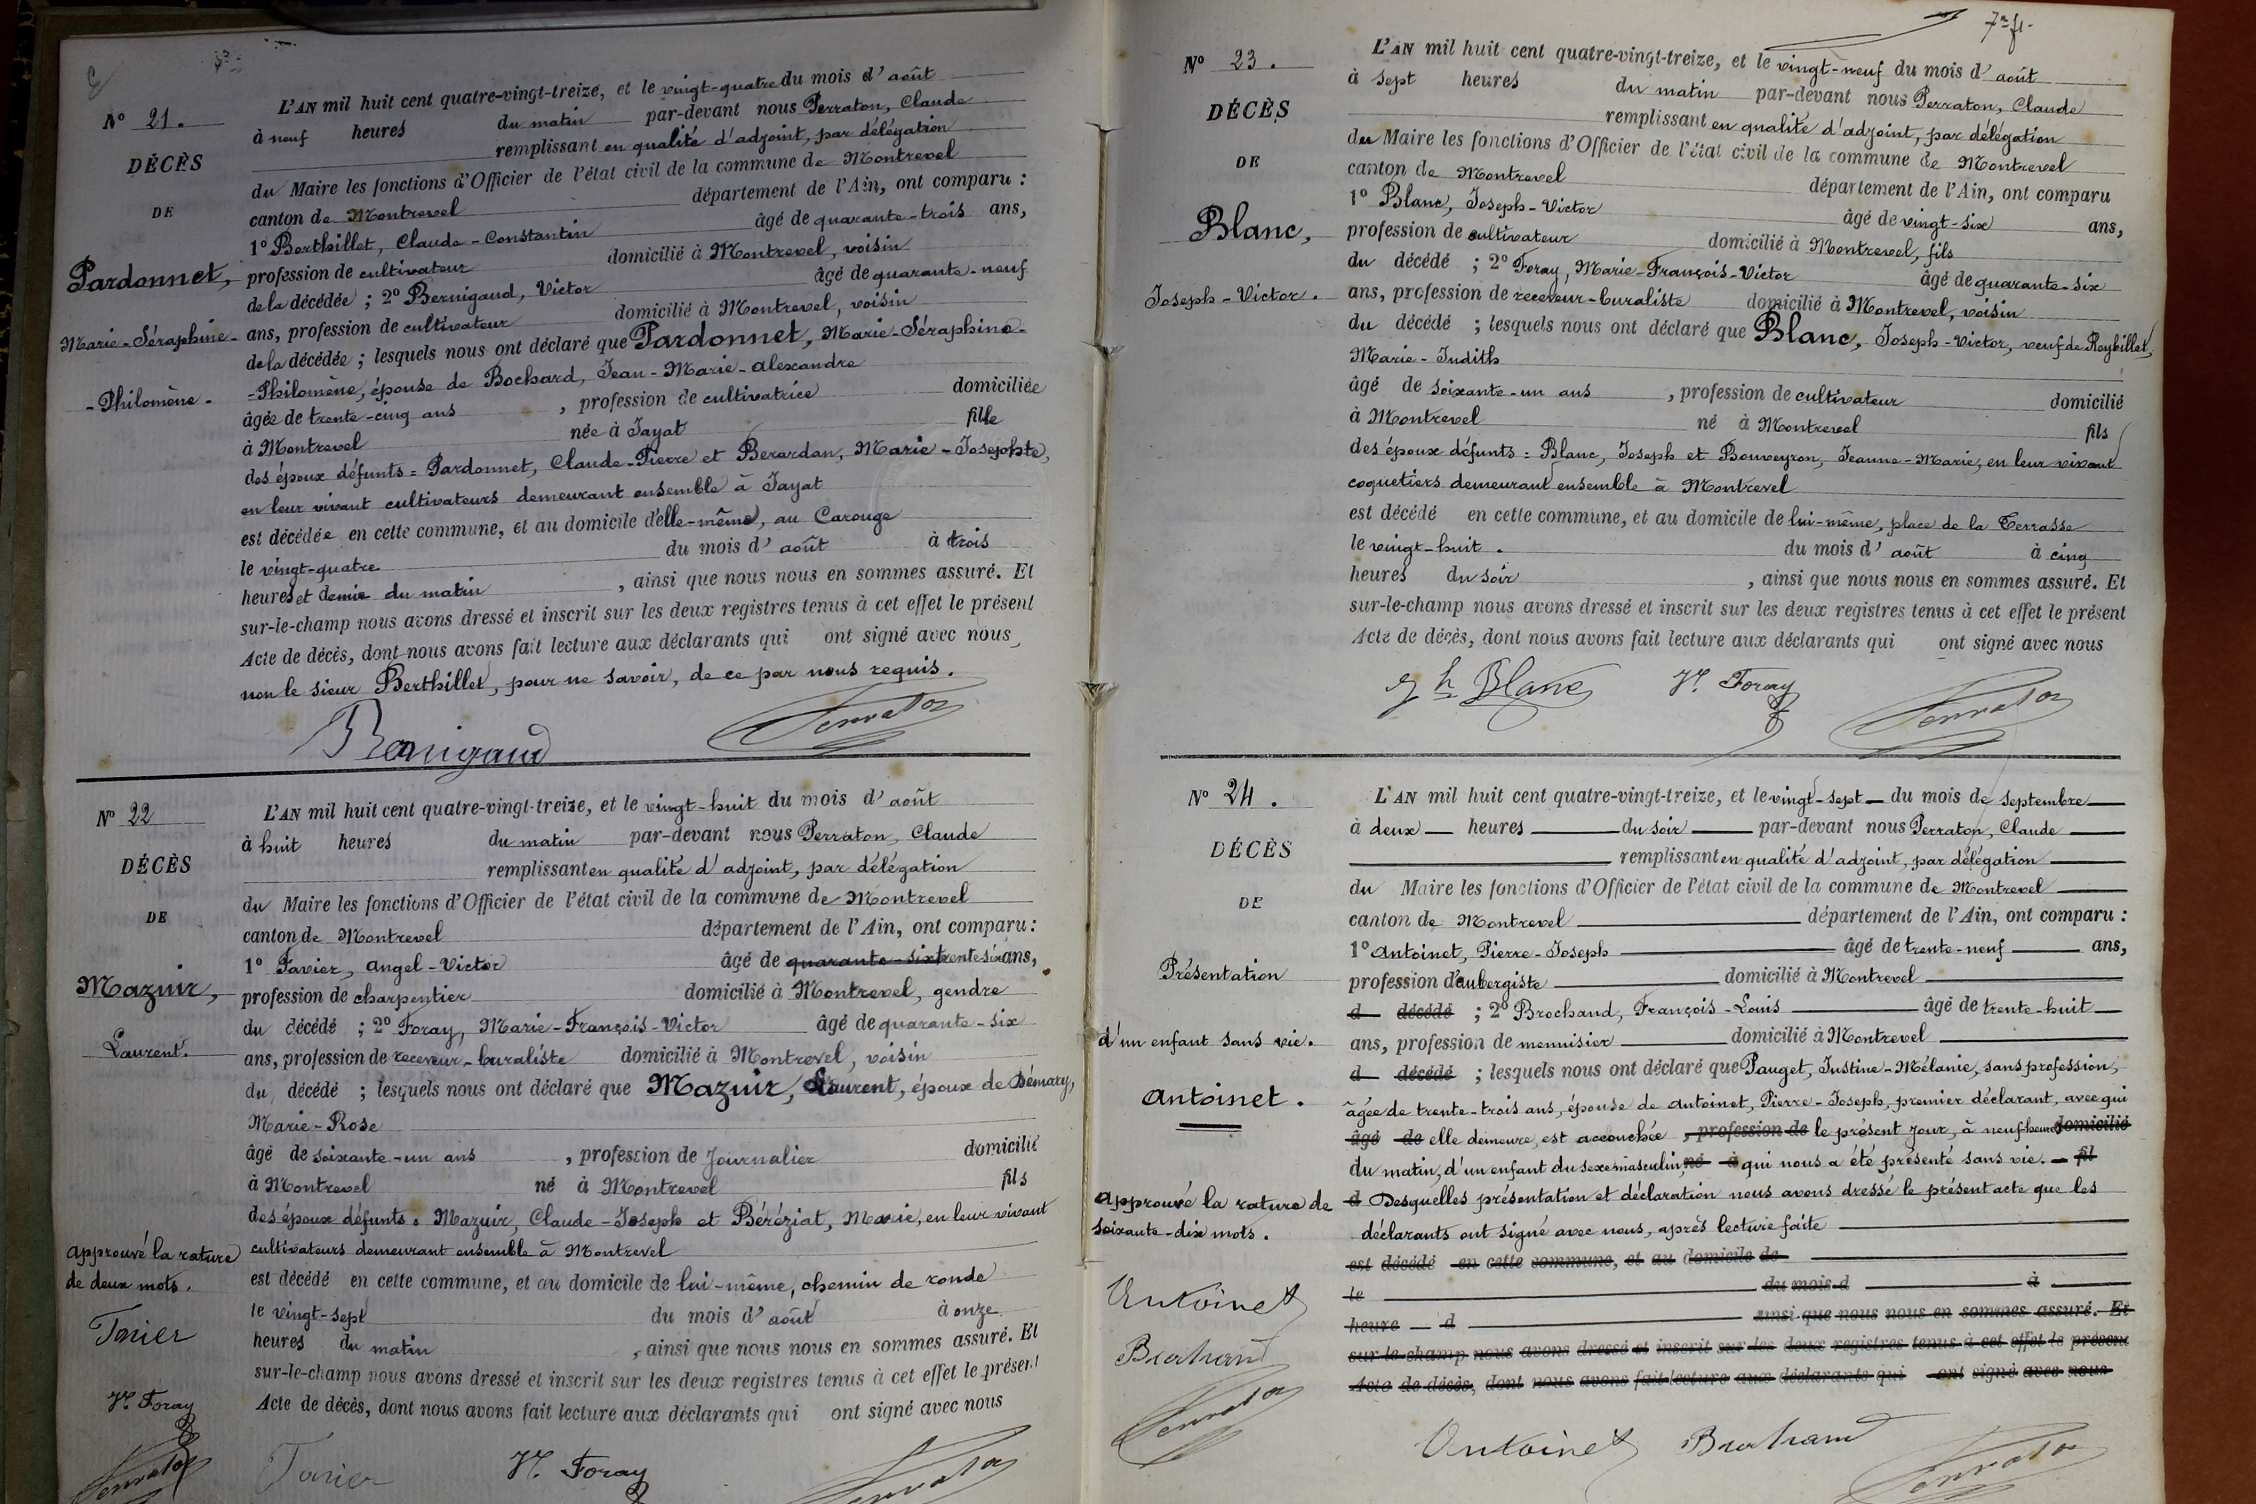 N° 21.
DÉCÈS
DE
Pardonnet,
Marie-Séraphine-
-Philomène.
L'AN mil huit cent quatre-vingt-treize, et le vingt-quatre du mois d'août
à neuf heures du matin par-devant nous Perraton, Claude
remplissant en qualité d'adjoint, par délégation
du Maire les fonctions d'Officier de l'état civil de la commune de Montrevel
canton de Montrevel département de l'Ain, ont comparu :
1° Berthillet, Claude-Constantin âgé de quarante-trois ans,
profession de cultivateur domicilié à Montrevel, voisin
de la décédée ; 2° Bernigaud, Victor âgé de quarante-neuf
ans, profession de cultivateur domicilié à Montrevel, voisin
de la décédée ; lesquels nous ont déclaré que Pardonnet, Marie-Séraphine-
-Philomène, épouse de Bochard, Jean-Marie-Alexandre
âgée de trente-cinq ans , profession de cultivatrice domiciliée
à Montrevel née à Jayat fille
des époux défunts = Pardonnet, Claude-Pierre et Berardan, Marie-Josephte,
en leur vivant cultivateurs demeurant ensemble à Jayat
est décédée en cette commune, et au domicile d'elle-même, au Carouge
le vingt-quatre du mois d'août à trois
heures et demie du matin , ainsi que nous nous en sommes assuré. Et
sur-le-champ nous avons dressé et inscrit sur les deux registres tenus à cet effet le présent
Acte de décès, dont nous avons fait lecture aux déclarants qui ont signé avec nous,
non le sieur Berthillet, pour ne savoir, de ce par nous requis.
Bernigaud Perraton
N° 22
DÉCÈS
DE
Mazuir,
Laurent.
approuvé la rature
de deux mots.
Tavier
Vr. Foray
Perraton
L'AN mil huit cent quatre-vingt-treize, et le vingt-huit du mois d'août
à huit heures du matin par-devant nous Perraton, Claude
remplissant en qualité d'adjoint, par délégation
du Maire les fonctions d'Officier de l'état civil de la commune de Montrevel
canton de Montrevel département de l'Ain, ont comparu :
1° Tavier, Angel-Victor âgé de quarante-six trente six ans,
profession de charpentier domicilié à Montrevel, gendre
du décédé ; 2° Foray, Marie-François-Victor âgé de quarante-six
ans, profession de receveur-buraliste domicilié à Montrevel, voisin
du décédé ; lesquels nous ont déclaré que Mazuir, Laurent, époux de Démary,
Marie-Rose
âgé de soixante-un ans , profession de Journalier domicilié
à Montrevel né à Montrevel fils
des époux défunts : Mazuir, Claude-Joseph et Béréziat, Marie, en leur vivant
cultivateurs demeurant ensemble à Montrevel
est décédé en cette commune, et au domicile de lui-même, chemin de ronde
le vingt-sept du mois d'août à onze
heures du matin , ainsi que nous nous en sommes assuré. Et
sur-le-champ nous avons dressé et inscrit sur les deux registres tenus à cet effet le présent
Acte de décès, dont nous avons fait lecture aux déclarants qui ont signé avec nous
Tavier Vr. Foray Perraton
N° 23.
DÉCÈS
DE
Blanc,
Joseph-Victor.
L'AN mil huit cent quatre-vingt-treize, et le vingt-neuf du mois d'août
à sept heures du matin par-devant nous Perraton, Claude
remplissant en qualité d'adjoint, par délégation
du Maire les fonctions d'Officier de l'état civil de la commune de Montrevel
canton de Montrevel département de l'Ain, ont comparu
1° Blanc, Joseph-Victor âgé de vingt-six ans,
profession de cultivateur domicilié à Montrevel, fils
du décédé ; 2° Foray, Marie-François-Victor âgé de quarante-six
ans, profession de receveur-buraliste domicilié à Montrevel, voisin
du décédé ; lesquels nous ont déclaré que Blanc, Joseph-Victor, veuf de Reybillet,
Marie-Judith
âgé de soixante-un ans , profession de cultivateur domicilié
à Montrevel né à Montrevel fils
des époux défunts : Blanc, Joseph et Bouveyron, Jeanne-Marie, en leur vivant
coquetiers demeurant ensemble à Montrevel
est décédé en cette commune, et au domicile de lui-même, place de la Terrasse
le vingt-huit. du mois d'août à cinq
heures du soir , ainsi que nous nous en sommes assuré. Et
sur-le-champ nous avons dressé et inscrit sur les deux registres tenus à cet effet le présent
Acte de décès, dont nous avons fait lecture aux déclarants qui ont signé avec nous
Blanc Vr. Foray Perraton
N° 24.
DÉCÈS
DE
Présentation
d'un enfant sans vie.
Antoinet.
approuvé la rature de
soixante-dix mots.
Antoinet
Brochand
Perraton
L'AN mil huit cent quatre-vingt-treize, et le vingt-sept du mois de septembre
à deux heures du soir par-devant nous Perraton, Claude
remplissant en qualité d'adjoint, par délégation
du Maire les fonctions d'Officier de l'état civil de la commune de Montrevel
canton de Montrevel département de l'Ain, ont comparu :
1° Antoinet, Pierre-Joseph âgé de trente-neuf ans,
profession d'aubergiste domicilié à Montrevel
d décédé ; 2° Brochand, François-Louis âgé de trente-huit
ans, profession de menuisier domicilié à Montrevel
d décédé ; lesquels nous ont déclaré que Pauget, Justine-Mélanie, sans profession,
âgée de trente-trois ans, épouse de Antoinet, Pierre-Joseph, premier déclarant, avec qui
âgé de elle demeure, est accouchée , profession de le présent jour, à neuf heures domicilié
du matin, d'un enfant du sexe masculin né à qui nous a été présenté sans vie. fil
d Desquelles présentation et déclaration nous avons dressé le présent acte que les
déclarants ont signé avec nous, après lecture faite
est décédé en cette commune, et au domicile de
le du mois d à
heure d ainsi que nous nous en sommes assuré. Et
sur-le-champ nous avons dressé et inscrit sur les deux registres tenus à cet effet le présent
Acte de décès, dont nous avons fait lecture aux déclarants qui ont signé avec nous
Antoinet Brochand Perraton